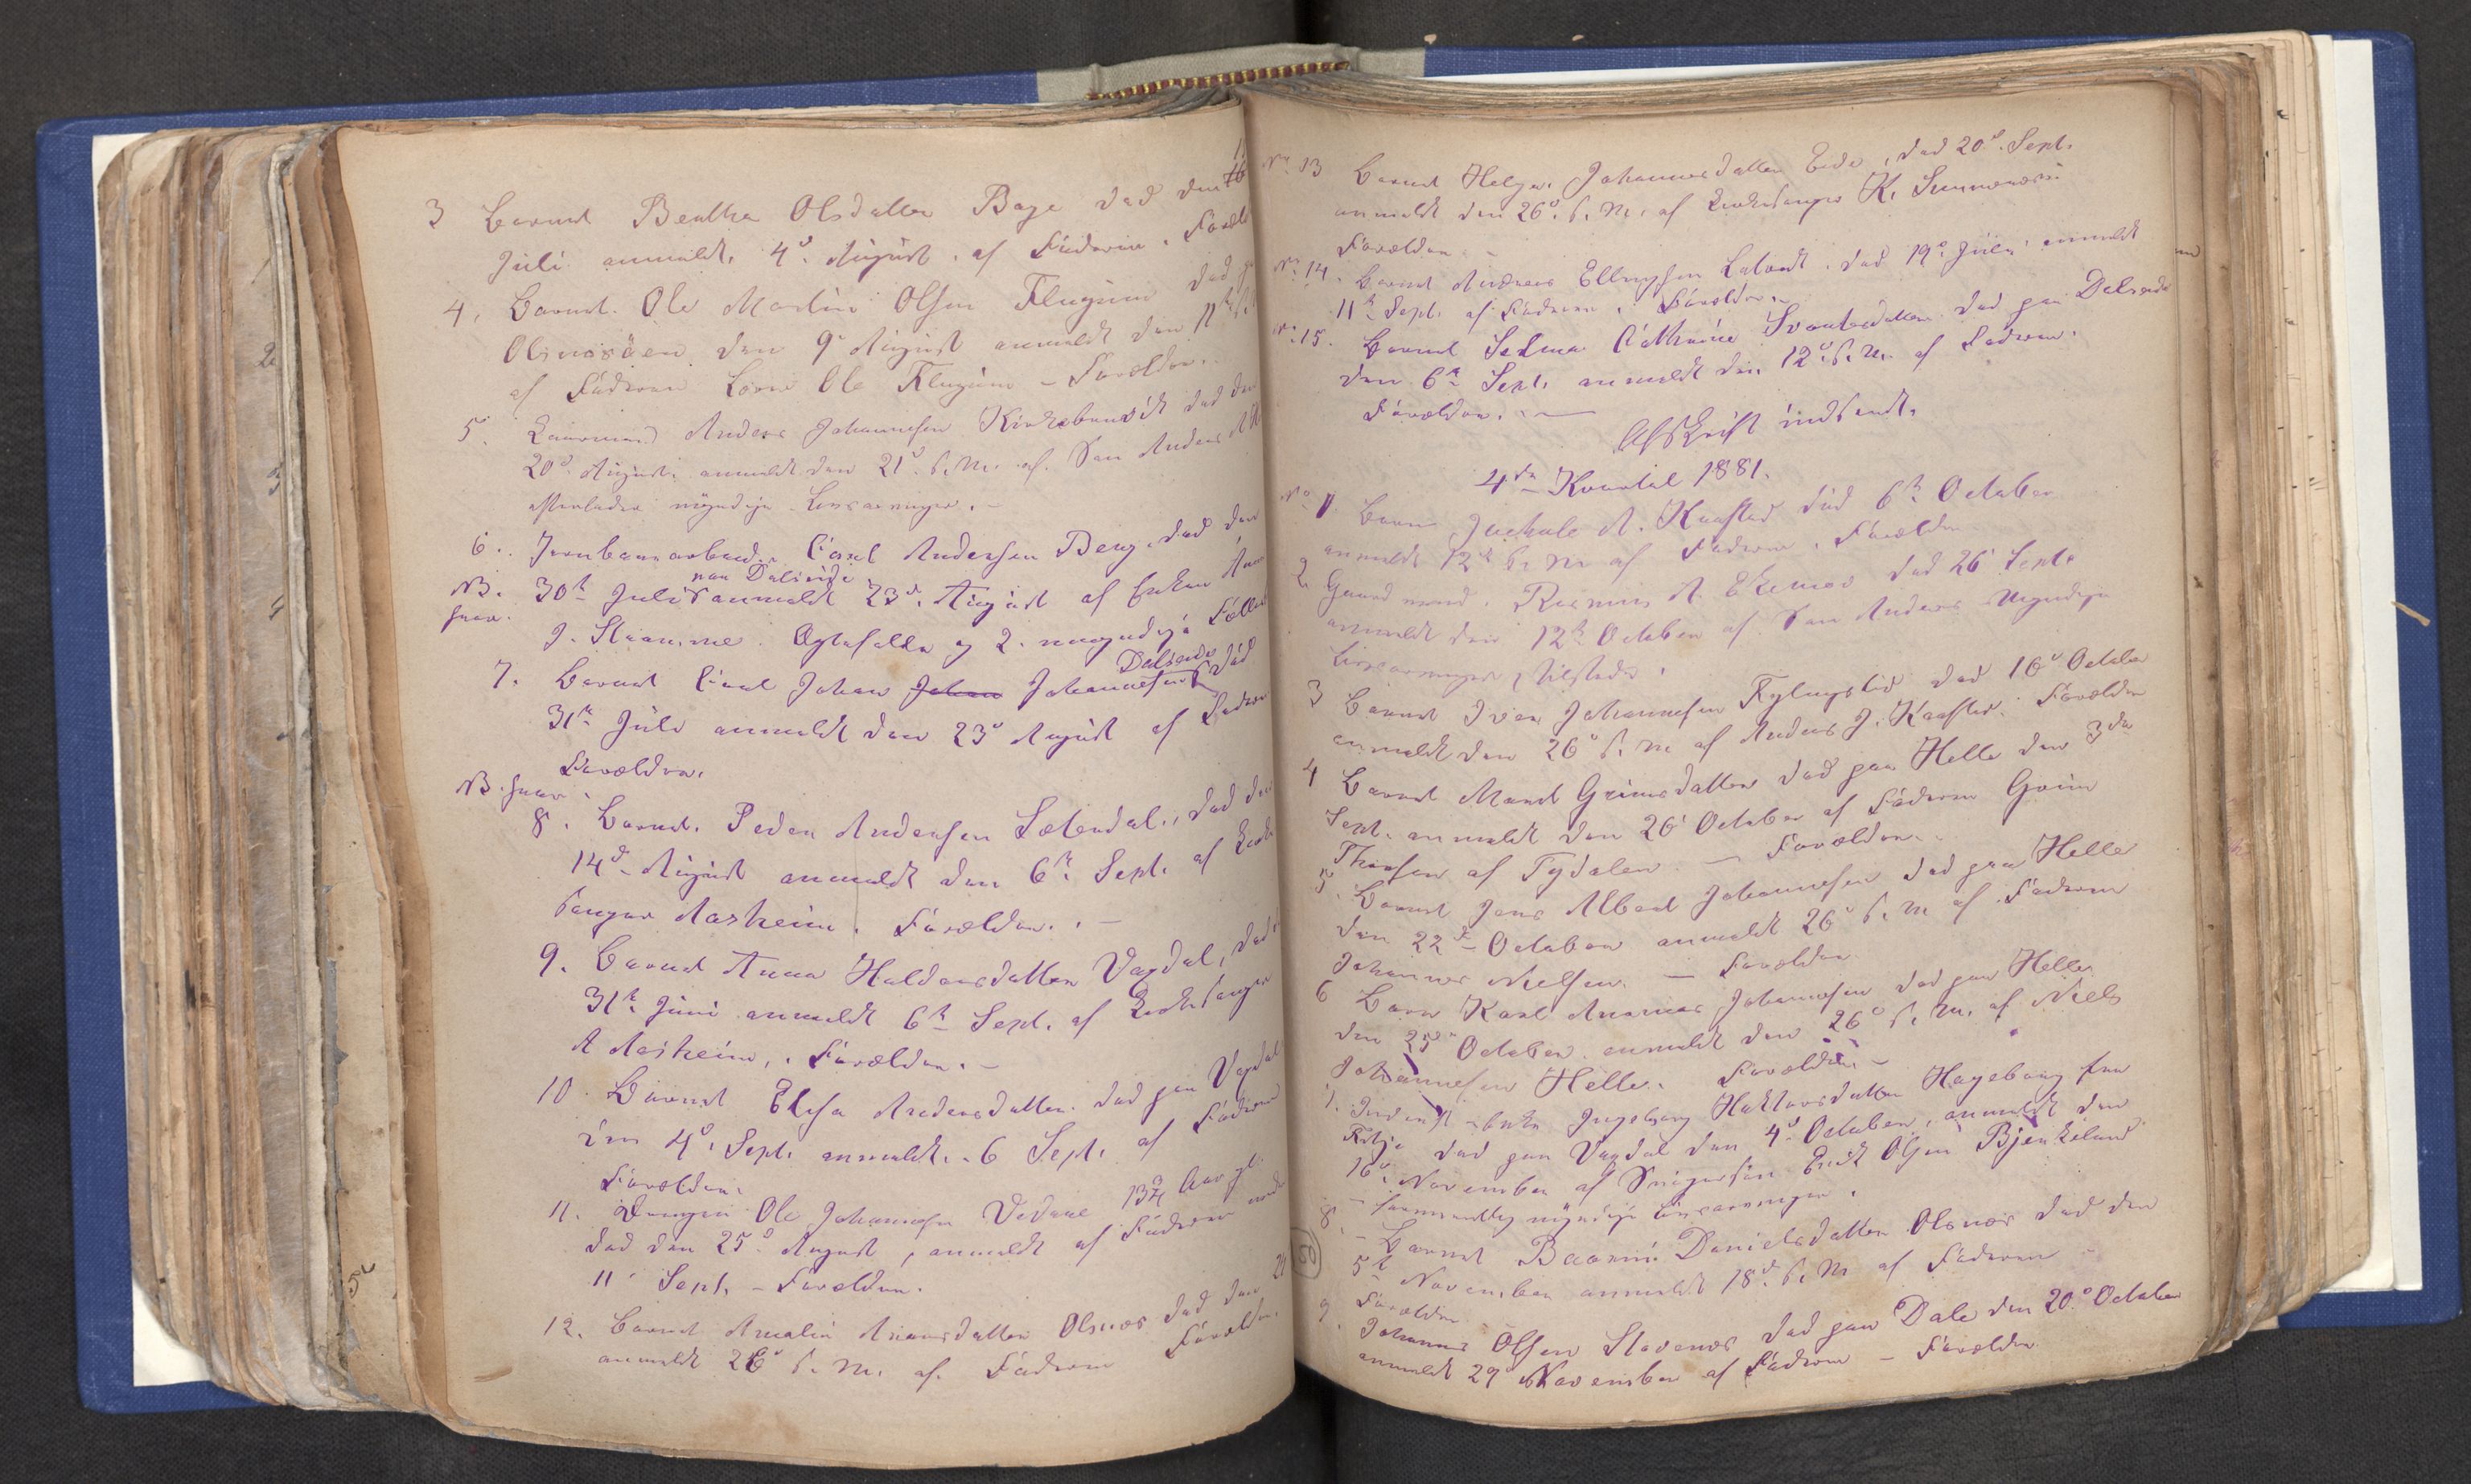 3 Barnet Beatha Olsdatter Boge død den 16
Juli anmeldt 4d August af Faderen. Foræld
4. Barnet Ole Martin Olsen Flugum død
Olsnæsøen den 9d August anmeldt den 11te
af Faderen Ole Flugum - Forældre.
5. Anders Johannesen Kirkebunvik død den
20d August anmeldt den 21d s. M. af Søn Anders
efterlader myndige Livsarvinger.
6. Jernbanearbeider Carl Andersen Berg. død den
NB. 30te Juli paa Dalseide anmeldt 23d August af Enken Anne
J. Ægtefælle og 2 umyndige
7. Barnet Carl Johan Johan Johannesen Dalseide død
31te Juli anmeldt den 23d August af Faderen
Forældre.
NB.
8. Barnet Peder Andersen Sætendal, død den
14d August anmeldt den 6te Sept. af Kirke
sanger Aasheim. Forældre. -
9. Barnet Anna Haldorsdatter Vaxdal, død
31te Juni anmeldt 6te Sept. af Kirkesanger
A Aasheim, Forældre. -
10. Barnet Elisa Andersdatter død paa Vaxdal
den 4d Sept. anmeldt 6 Sept. af Faderen
Forældre.
11. Drengen Ole Johannesen Vedaae 13¾ Aar gl.
død den 25d August, anmeldt af Faderen
11 Sept. - Forældre.
12. Barnet Amalia Andersdatter Olsnæs død den 24
anmeldt 26d s. M. af Faderen Forældre.
No 13 Barnet Helga Johannesdatter Eide, død 20d Sept.
anmeldt den 26d s. M. af Kirkesanger K. Simmenæs
Forældre -
No 14. Barnet Andreas Ellingsen død 19d Juli anmeldt
11te Sept. af Faderen. Forældre.
No 15. Barnet Selma Cathrine død paa Dalseide
den 6te Sept. anmeldt den 12d s. M. af Faderen.
Forældre. -
Afskrift indsendt.
4de Kvartal 1881.
No 1 Barn A. Kaastad død 6te October
anmeldt 12te s. M af Faderen. Forældre
2. Gaardmand. Rasmus A. Ekenæs død 26 Sept.
anmeldt den 12te October af Søn Anders Myndige
Livsarvinger tilstede.
3 Barnet Iver Johannesen Fylingslid død 16d October
anmeldt den 26d s. M af Anders J. Kaastad. Forældre
4 Barnet Marit Grimsdatter død paa Helle den 3de
Sept. anmeldt den 26d October af Faderen Grim
Thorsen af Tydalen - Forældre.
5. Barnet Jens Albert Johannesen død paa Helle
den 22d October anmeldt 26d s. M af Faderen
Johannes Nielsen. - Forældre
6 Barn Karl Johannesen død paa Helle
den 25d October anmeldt den 26d s. M. af Niels
Johannesen Helle. Forældre -
7. Ingeborg Haktorsdatter Hageberg fra
død paa Vaxdal den 4d October, anmeldt den
16d November af Svigersøn Erik Olsen Bjerkeland
- myndige Livsarvinger.
8. - Barnet Danielsdatter Olsnæs død den
5te November anmeldt 18d s. M af Faderen -
Forældre
9. Johannes Olsen Stavenæs død paa Dale den 20d October
anmeldt 29d November af Faderen - Forældre